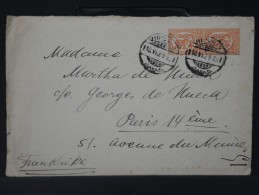 Madame
Martha de Hueck
c/o Georges de Hueck
Paris 14ème
51. Avenue du Maine,
Frankrike